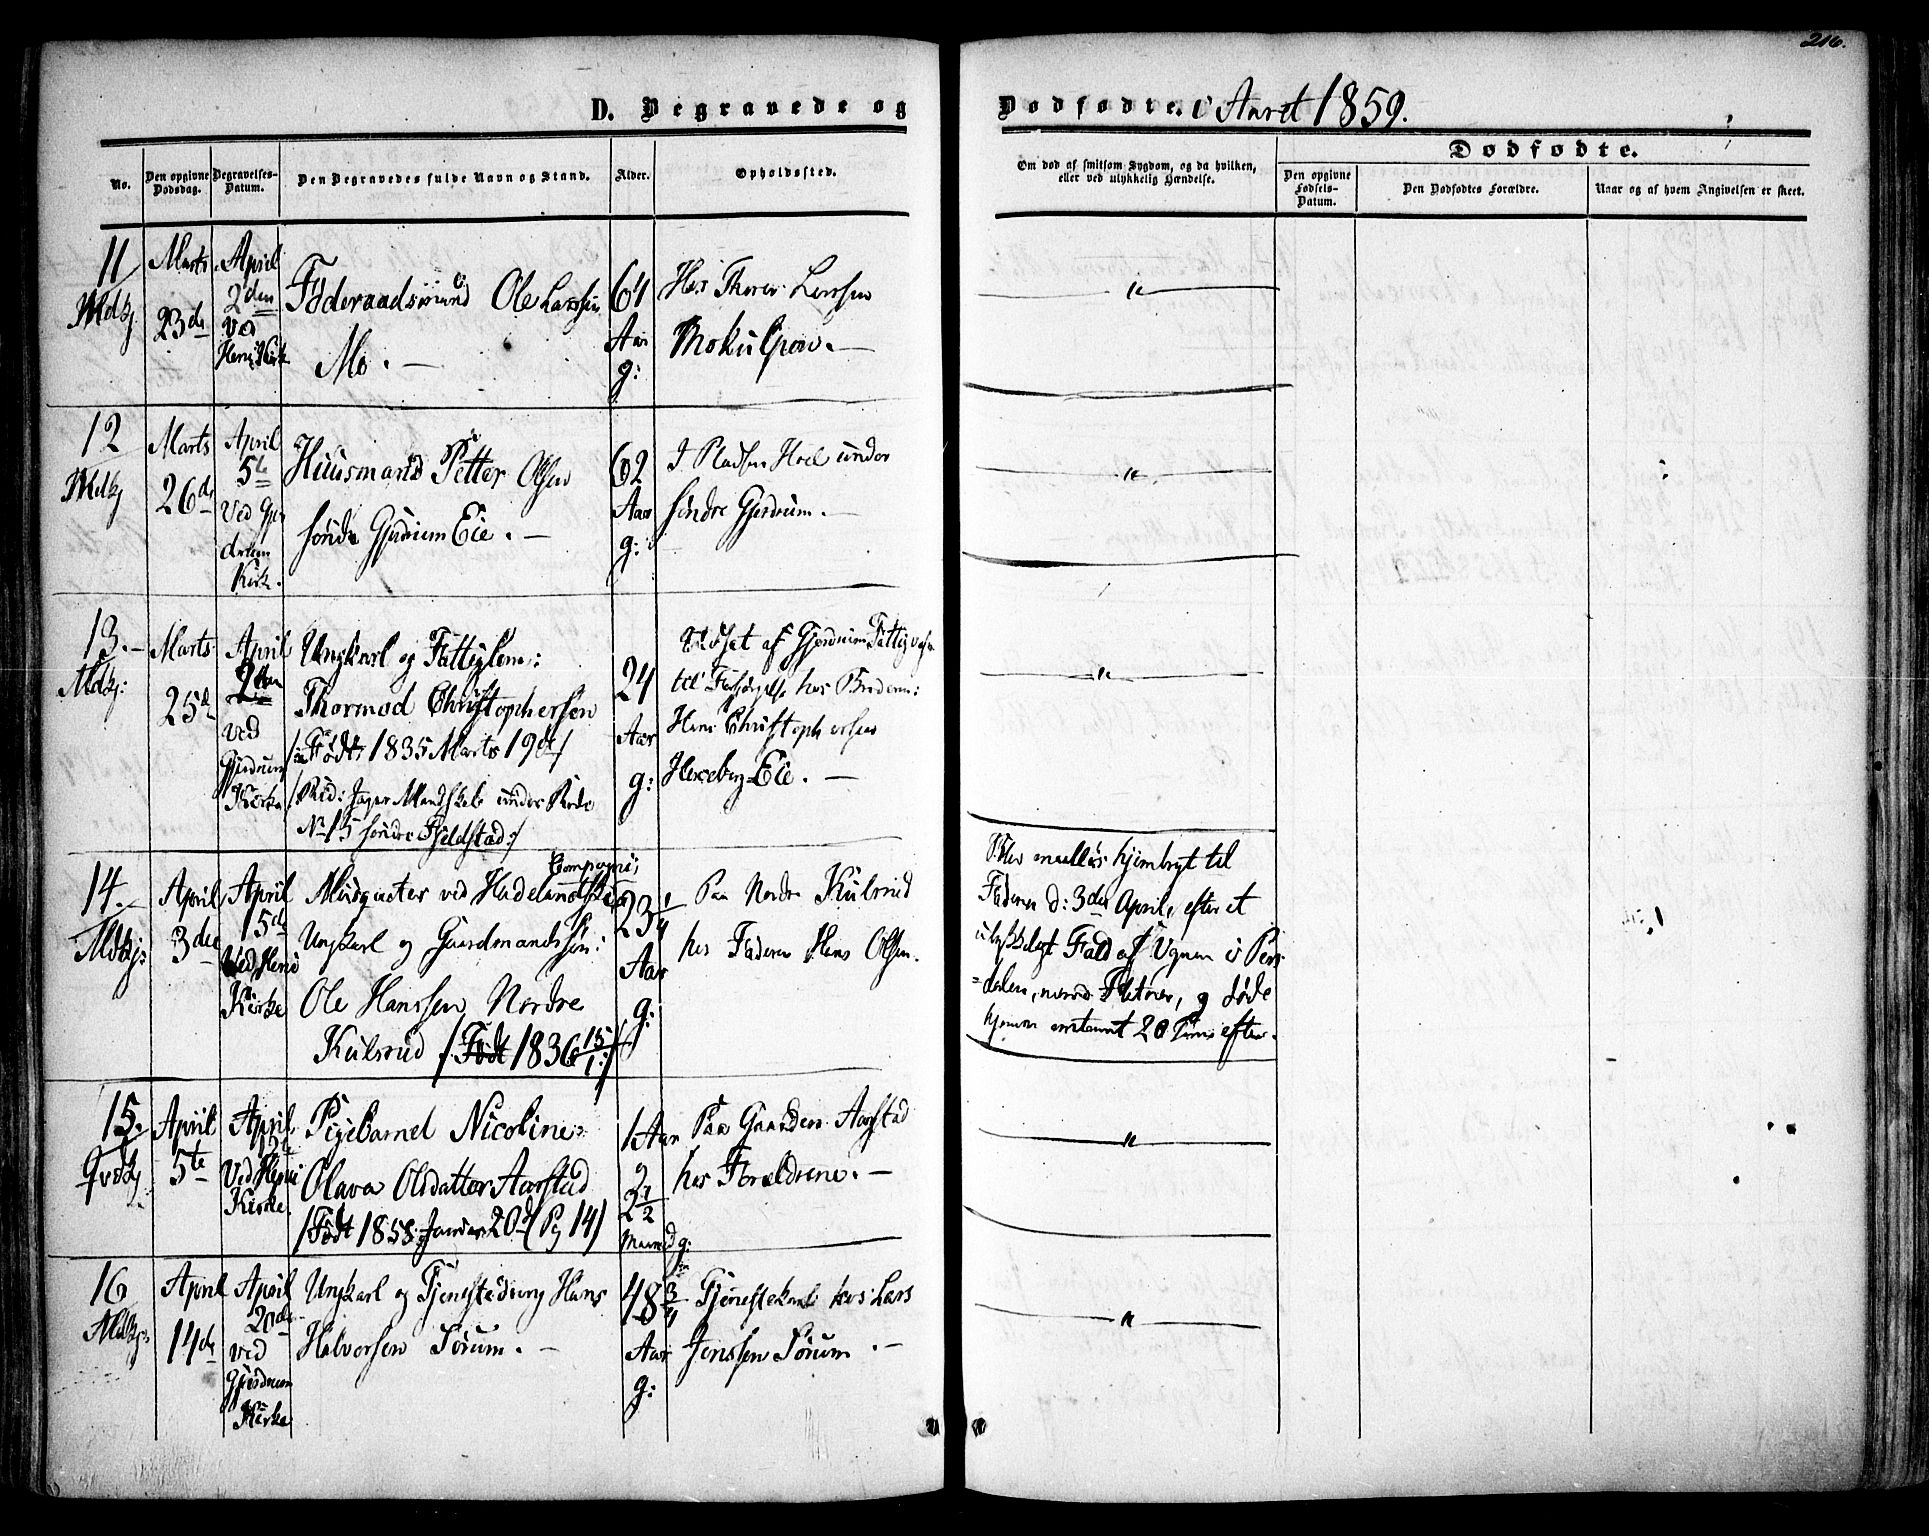 216.
D. Begravede og Dødfødte. i Aaret 1859.
No.
Den opgivne Dødsdag.
Begravelses-Datum.
Den Begravedes fulde Navn og Stand.
Alder.
Opholdssted.
Om død af smitsom Sygdom, og da hvilken,
eller ved ulykkelig Hændelse.
Dødfødte.
Den opgivne Fødsels-Datum.
Den Dødfødtes Forældre.
Naar og af hvem Angivelsen er skeet.
11
Mdkj
Marts
23de
April
2den
ved
Føderaadsmand Ole Larssen
Mo. —
64
Aar
g:
Hos Larssen
—"—
12
Mdkj
Marts
26de
April
5te
Ved Gjer
drum
Kirke.
Huusmand Petter Olsen
søndre Gjerdrum Eie. —
62
Aar
g:
I Pladsen under
søndre Gjerdrum. —
—"—
13. —
Mdkj:
Marts
25de
April
2den
ved
Gjerdrum
Kirke
Ungkarl og Fattiglem:
Thormod Christophersen
/: Født 1835 Marts 19de /
No 15 søndre Fjeldstad:/
24
Aar
g:
af Gjerdrum Fattigv
til Forsørgelse hos Broderen:
Hans Christophersen
Eie. —
—"—
14. —
Mdkj:
April
3die
April
15de
Ved
Kirke
ved Hadelandske
Compagni;
Ungkarl og Gaardmandssøn:
Ole Hanssen Nordre
Kulsrud /: Født 1836 15/1 :/
23 1/4
Aar
g:
Paa Nordre Kulsrud
hos Faderen Hans Olsen.
Blev hjembragt til
Faderen d: 3die April, efter et
ulykkeligt Fald af Vognen i
dalen, og døde
hjemme omtrent 20 efter.
15.
April
5te
April
Ved
Kirke.
Pigebarnet Nicoline
Olava Olsdatter Aarstad
/ Født 1858 Januar 20de (Pg 14)
1 Aar
2 1/2
Maaned g:
Paa Gaarden Aarstad
hos Forældrene. —
—"—
16
Mdkj:
April
14de
April
20de
ved
Gjerdrum
Kirke
Ungkarl og Tjenestedreng Hans
Halvorsen Sørum. —
48 3/4
Aar
g:
Tjenestekarl hos Lars
Jenssen Sørum. —
—"—